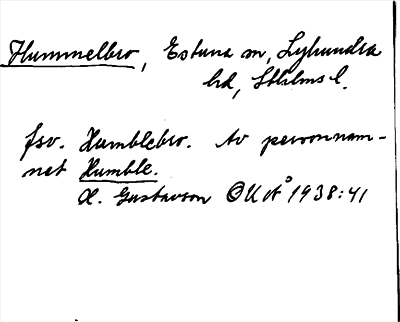 Hummelbro, Estuna sn, Lyhundra
hd, Sthlms l.
fsv. Humblebro. Av personnam-
net Humble.
H. Gustavson OUÅ 1938:41